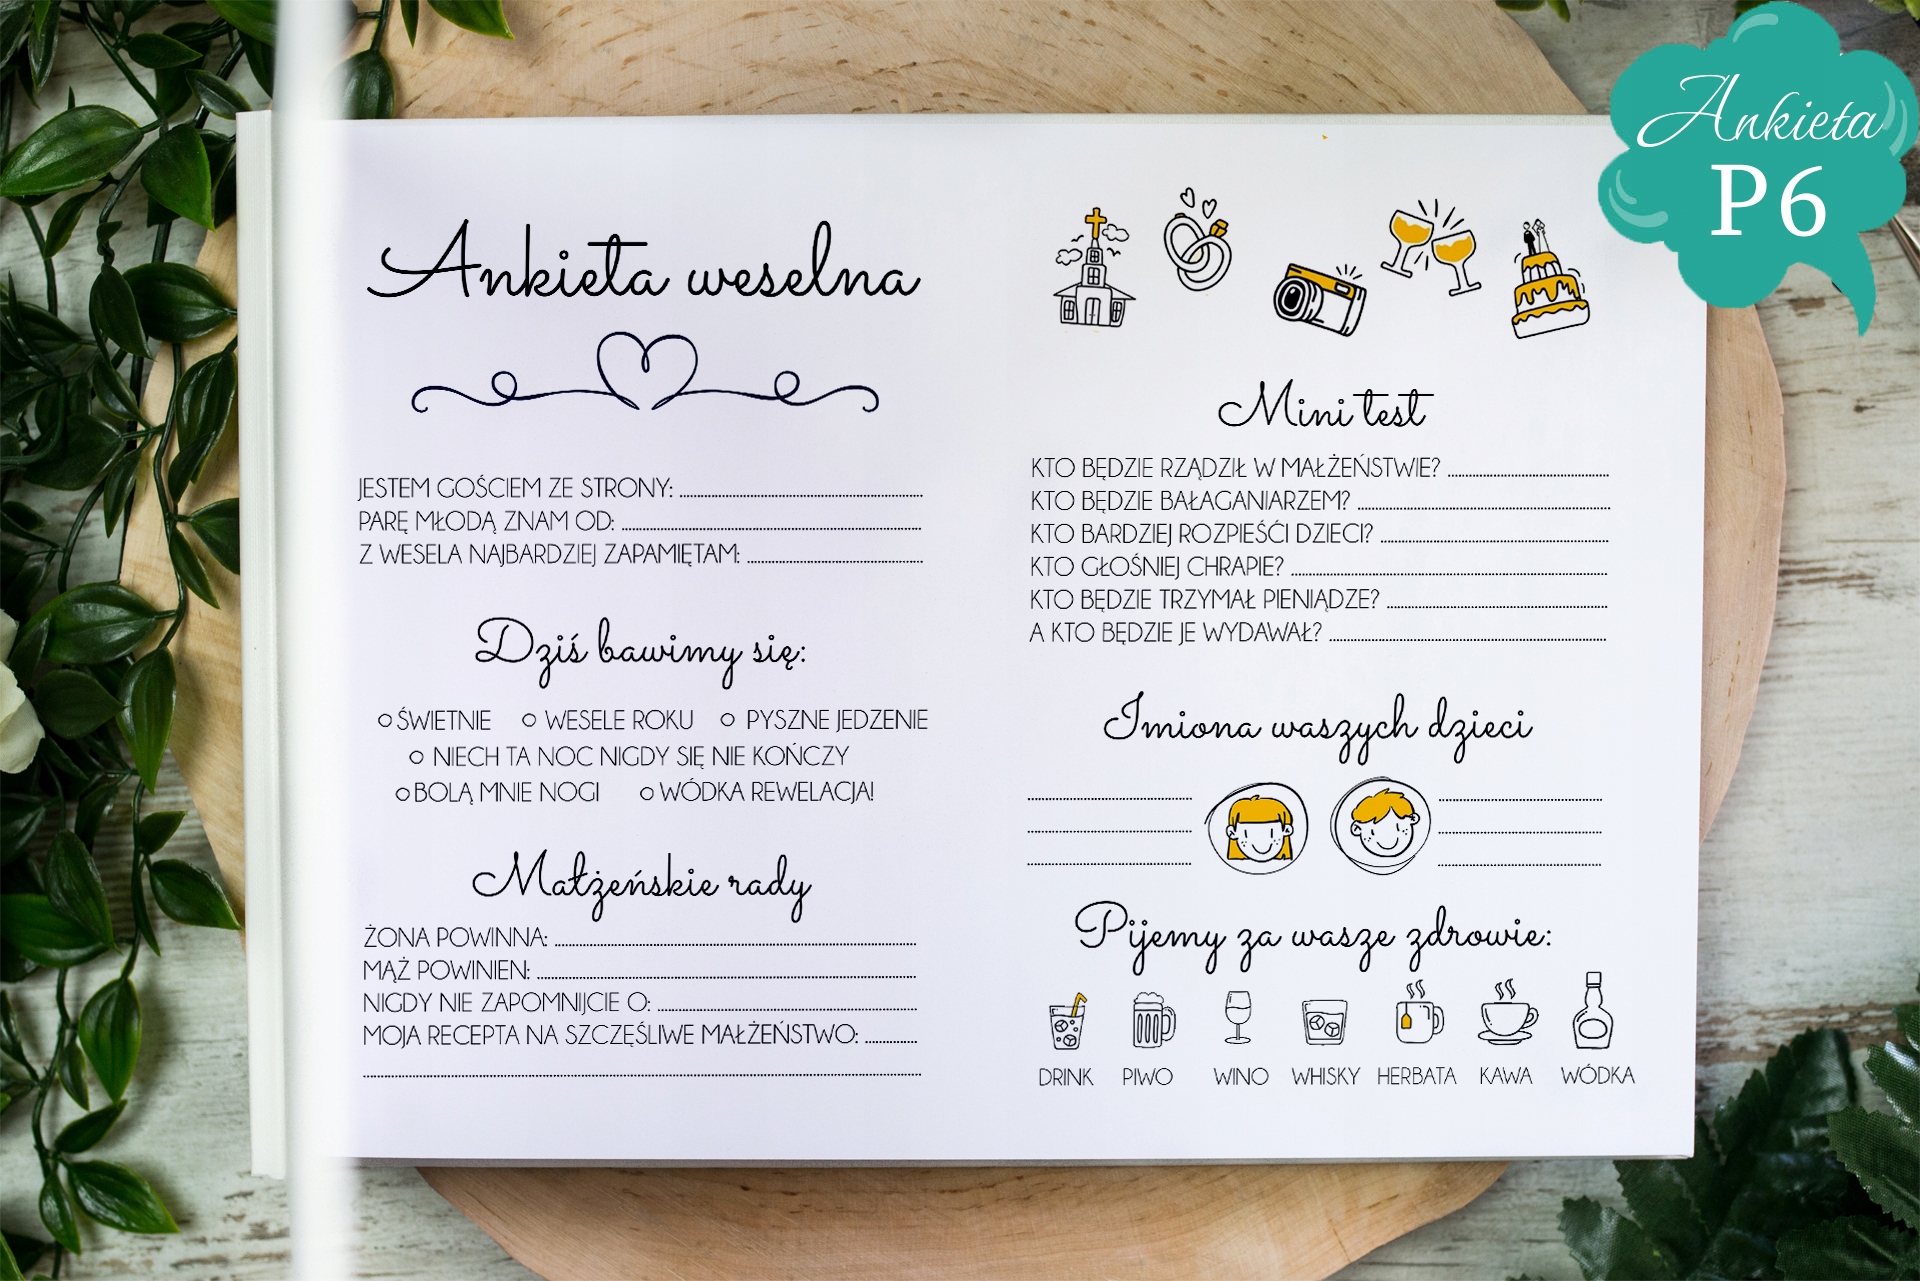 Ankieta
P6
Ankieta weselna
JESTEM GOŚCIEM ZE STRONY:
PARĘ MŁODĄ ZNAM OD:
Z WESELA NAJBARDZIEJ ZAPAMIĘTAM:
Dziś bawimy się:
ŚWIETNIE WESELE ROKU PYSZNE JEDZENIE
NIECH TA NOC NIGDY SIĘ NIE KOŃCZY
BOLĄ MNIE NOGI WÓDKA REWELACJA!
Małżeńskie rady
ŻONA POWINNA:
MĄŻ POWINIEN:
NIGDY NIE ZAPOMNIJCIE O:
MOJA RECEPTA NA SZCZĘŚLIWE MAŁŻEŃSTWO:
Mini test
KTO BĘDZIE RZĄDZIŁ W MAŁŻEŃSTWIE?
KTO BĘDZIE BAŁAGANIARZEM?
KTO BARDZIEJ ROZPIEŚĆI DZIECI?
KTO GŁOŚNIEJ CHRAPIE?
KTO BĘDZIE TRZYMAŁ PIENIĄDZE?
A KTO BĘDZIE JE WYDAWAŁ?
Imiona waszych dzieci
Pijemy za wasze zdrowie:
DRINK PIWO WINO WHISKY HERBATA KAWA WÓDKA